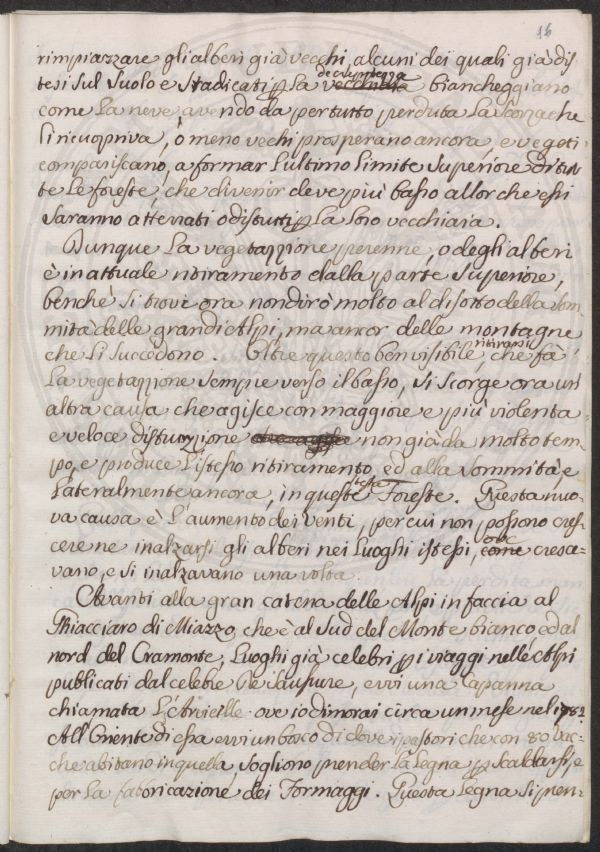 16
rimpiazzare gli alberi già vecchi, alcuni dei quali già dis
tesi sul suolo e sradicati p la decrepitezza biancheggiano
come la neve, avendo da per tutto perduta la scorza che
li ricuopriva, o meno vechi prosperano ancora, e vegeti
compariscano, a formar l'ultimo limite superiore di tut
te le foreste, che divenir deve più basso allorche essi
saranno atterrati o distutti p la loro vecchiaia.
Dunque la vegetazzione perenne, o degli alberi
è in attuale ritiramento dalla parte superiore,
benchè si trovi ora non dirò molto al disotto della som
mità delle grandi Alpi, ma ancor delle montagne
che li succedono. Oltre questo ben visibile ritirarsi, che fà
la vegetazzione sempre verso il basso, si scorge ora un
altra causa che agisce con maggiore e più violenta
e veloce distruzzione non già da molto tem
po, e produce l'istesso ritiramento, ed alla sommità, e
lateralmente ancora, in queste Foreste. Questa nuo
va causa è l'aumento dei venti, per cui non possono cres
cere ne inalzarsi gli alberi nei luoghi istessi, ove cresce=
vano, e si inalzavano una volta.
Avanti alla gran catena delle Alpi in faccia al
Ghiacciaro di Miazzo, che è al Sud del Monte bianco ed al
nord del Cramonte, luoghi già celebri p i viaggi nelle Alpi
publicati dal celebre De Sausure, evvi una Capanna
chiamata L'Arvieille ove io dimorai circa un mese nel
All'Oriente di essa evvi un bosco di dove i pastori che con 80 vac=
che abitano in quella, sogliono prender la legna p scaldarsi, e
per la fabbricazione dei Formaggi. Questa legna si pren=